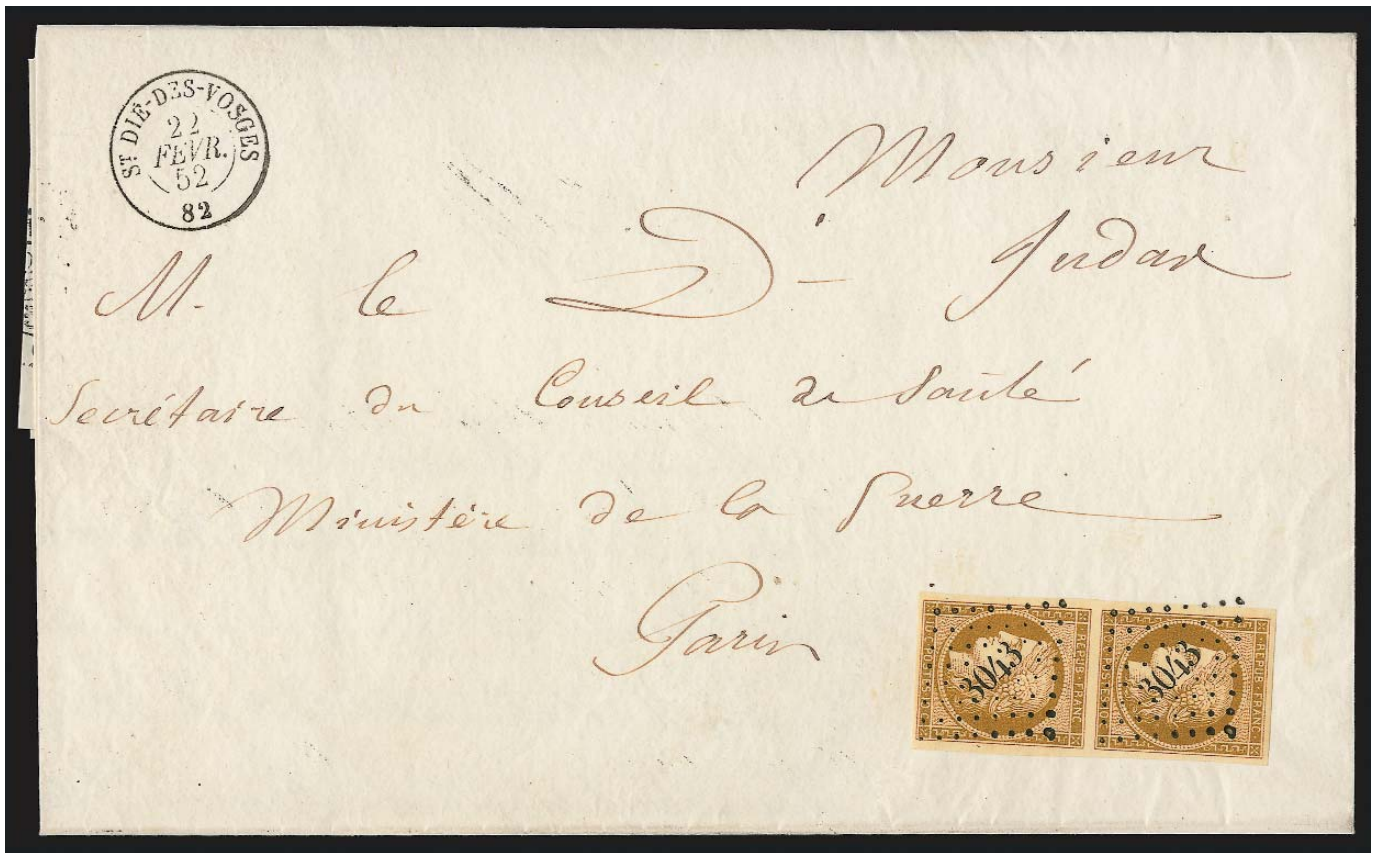 ST DIÉ-DES-VOSGES
22
FEVR.
52
82
Monsieur
M. le Dr Judas
Secrétaire du Conseil de Santé
Ministère de la Guerre
Paris
3043
3043
REPUB·FRANC·
REPUB·FRANC·